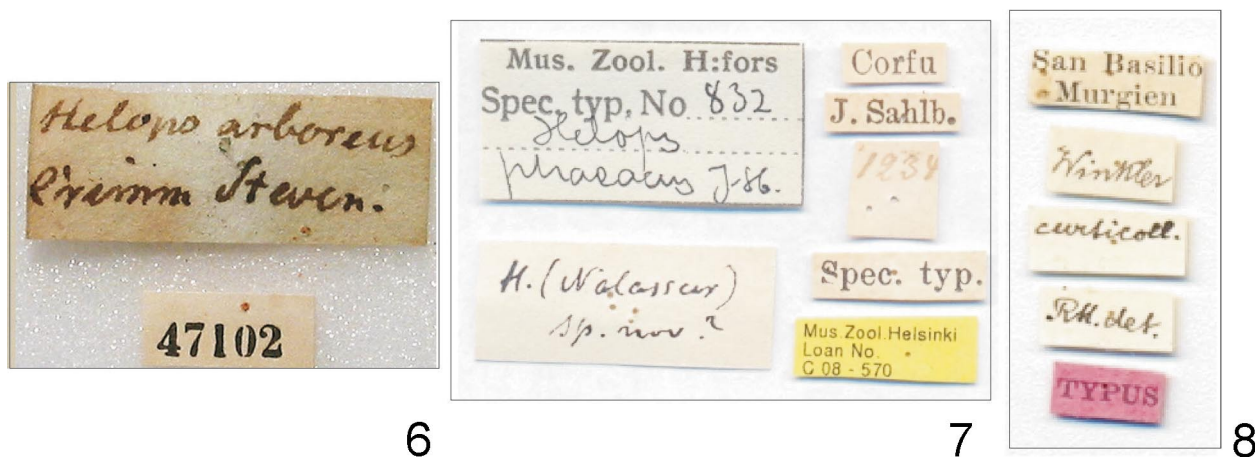 Helops arboreus
Crimm Steven.
47102
6
Mus. Zool. H:fors
Spec. typ. No 832
Helops
phaeacus J. Sb.
H. (Nalassus)
sp. nov?
Corfu
J. Sahlb.
1234
Spec. typ.
Mus. Zool. Helsinki
Loan No.
C 08 - 570
7
San Basilio
Murgien
Winkler
curticoll.
Rtt. det.
TYPUS
8